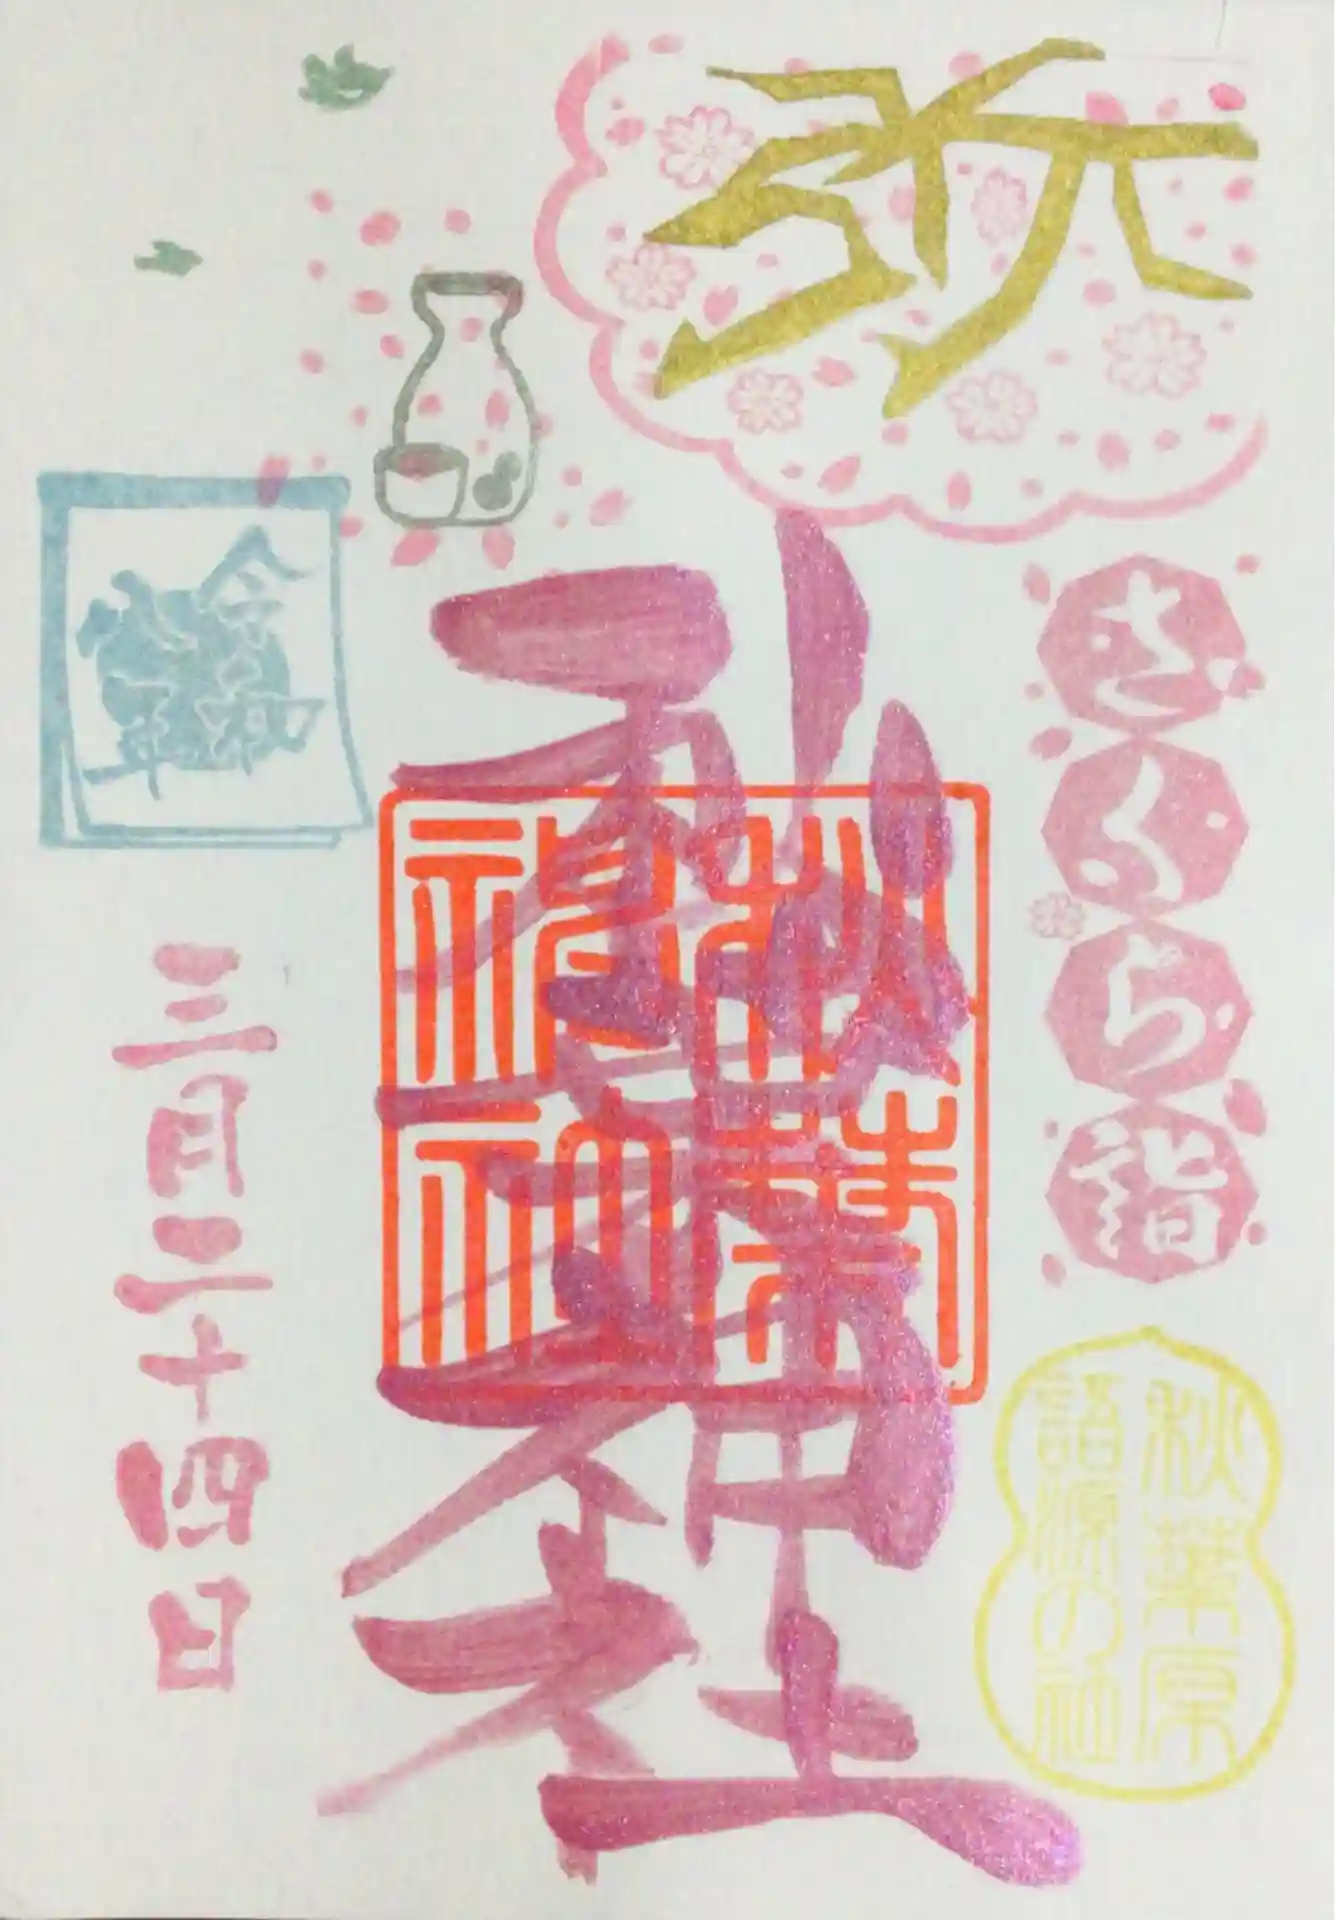 さくら詣
秋葉原
語源の社
秋葉神社
秋葉
神社
令和
三月二十四日